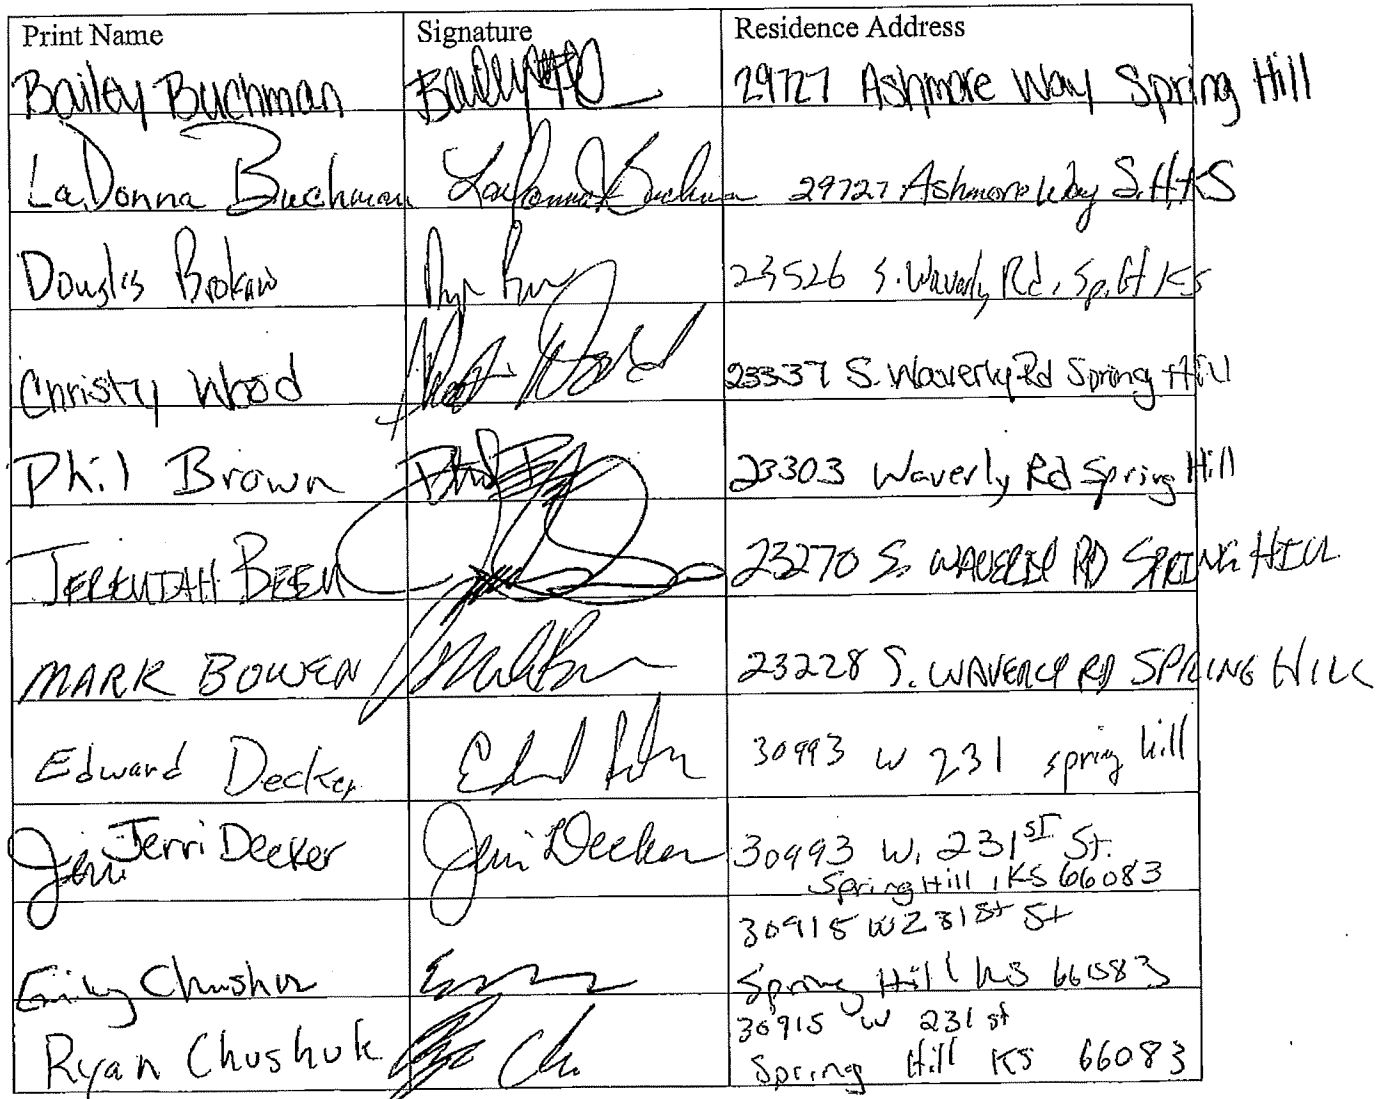 Print Name Signature Residence Address
Bailey Buchman Bailey 29727 Ashmore Way Spring Hill
LaDonna Buchman LaDonna Buchman 29727 Ashmore Way S.H. KS
Douglis Brokaw 23526 S. Waverly Rd. Sp. Hl KS
Christy Wood 23337 S. Waverly Rd Spring Hill
Phil Brown Phil 23303 Waverly Rd Spring Hill
JEREMIAH BEEM 23270 S. WAVERLY RD SPRING HILL
MARK BOWEN Mark 23228 S. WAVERLY RD SPRING HILL
Edward Decker 30993 W 231 spring hill
Jerri Jerri Decker Jerri Decker 30993 W. 231st St.
Spring Hill, KS 66083
30915 W 231st St
Emily Chushuk Spring Hill KS 66083
30915 W 231st
Ryan Chushuk Spring Hill KS 66083